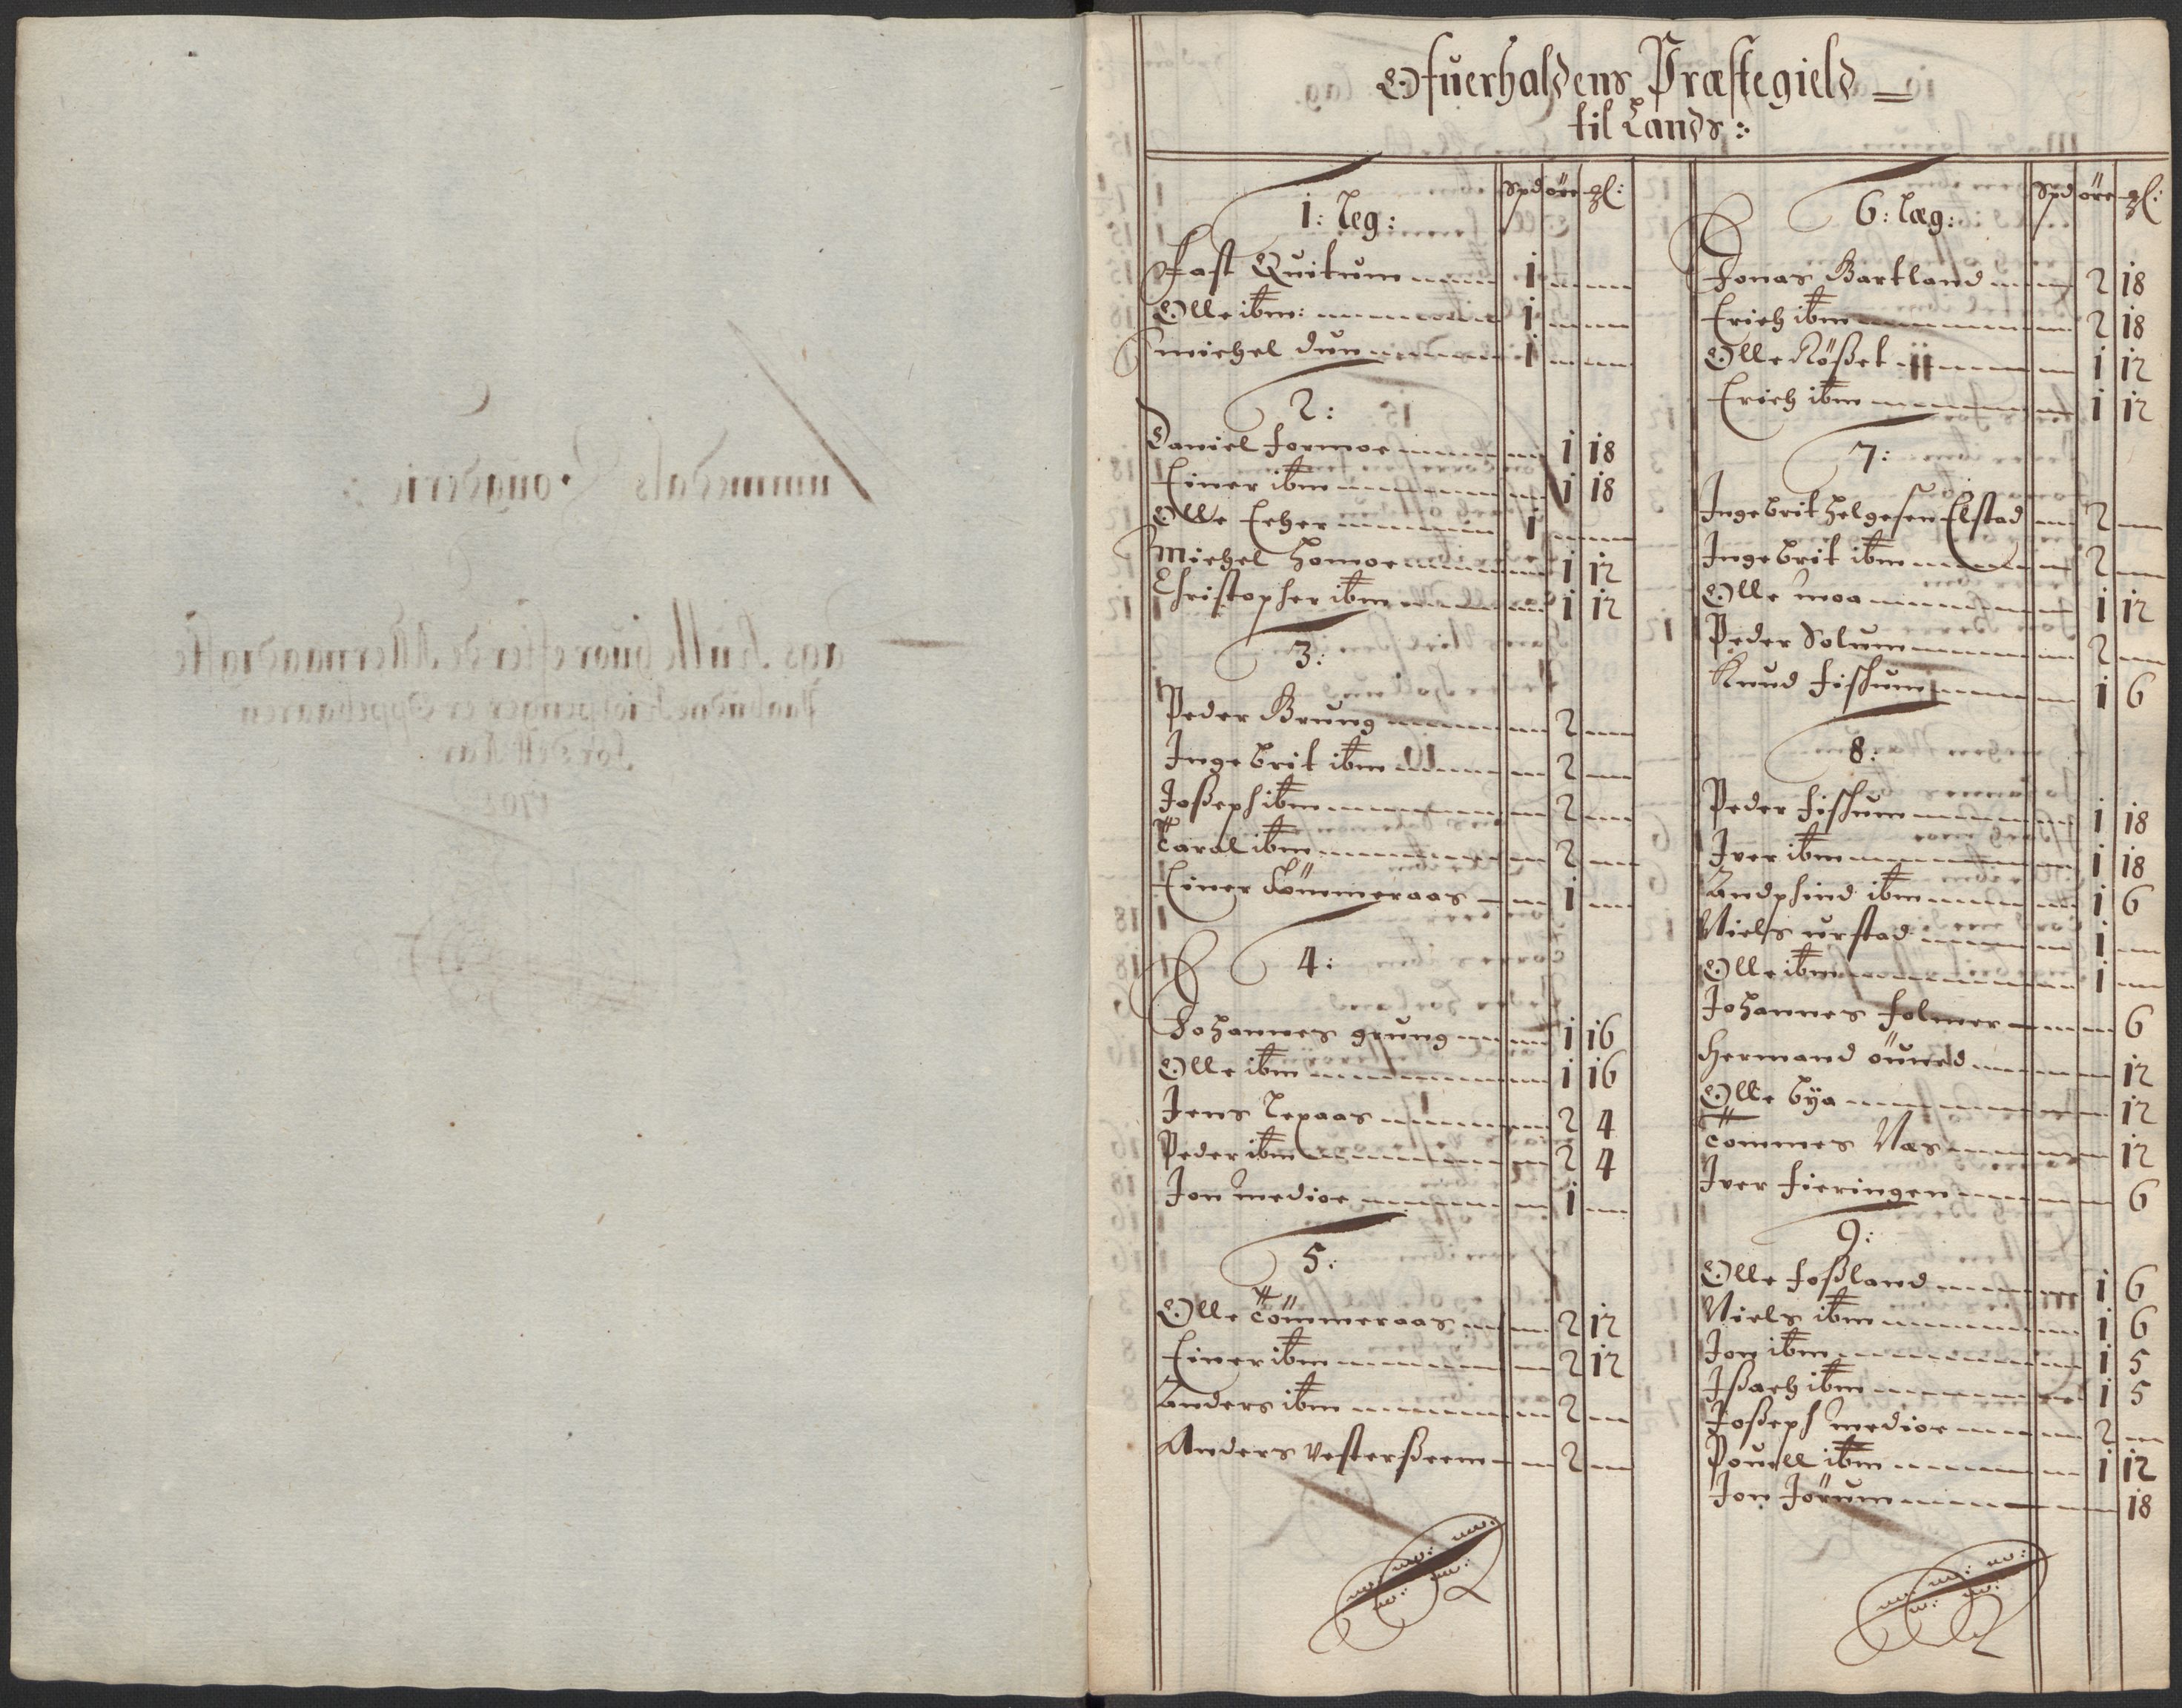 Ofuerhaldens Præstegield
til Lands:
1: Leg: Spd öre gl:
Fast Quitum 1
Olle ibm: 1
michel dun 1
2:
Daniel formoe 1 18
Einer ibm 1 18
Olle Ecker 1
Michel homoe 1 12
Christopher ibm 1 12
3:
Peder Brung 2
Ingebrit ibm 2
Joßeph ibm 2
Taral ibm 2
Einer Tömmeraas 1
4:
Johannes grung 1 16
Olle ibm 1 16
Jens Lexaas 2 4
Peder ibm 2 4
Jon medioe 1
5:
Olle Tömmeraas 2 12
Einer ibm 2 12
Anders ibm 2
Anders Vesterßeem 2
6: Læg: Spd öre gl:
Jonas Bartland 2 18
Erich ibm 2 18
Olle Rößet 1 12
Erich ibm 1 12
7:
Ingebrit helgesen Elstad 2
Ingebrit ibm 2
Olle moa 1 12
Peder Solum 2
Knud fishum 1 6
8:
Peder fishum 1 18
Iver ibm 1 18
Andphind ibm 1 6
Niels urstad 1
Olle ibm 1
Johannes folmer 6
Hermand öuned 12
Olle bÿa 12
Tommes Næs 12
Iver fieringen 6
9:
Olle foßland 1 6
Niels ibm 1 6
Jon ibm 1 5
Ißach ibm 1 5
Joßeph medioe 2
Pouell ibm 1 12
Jon Jörum 18